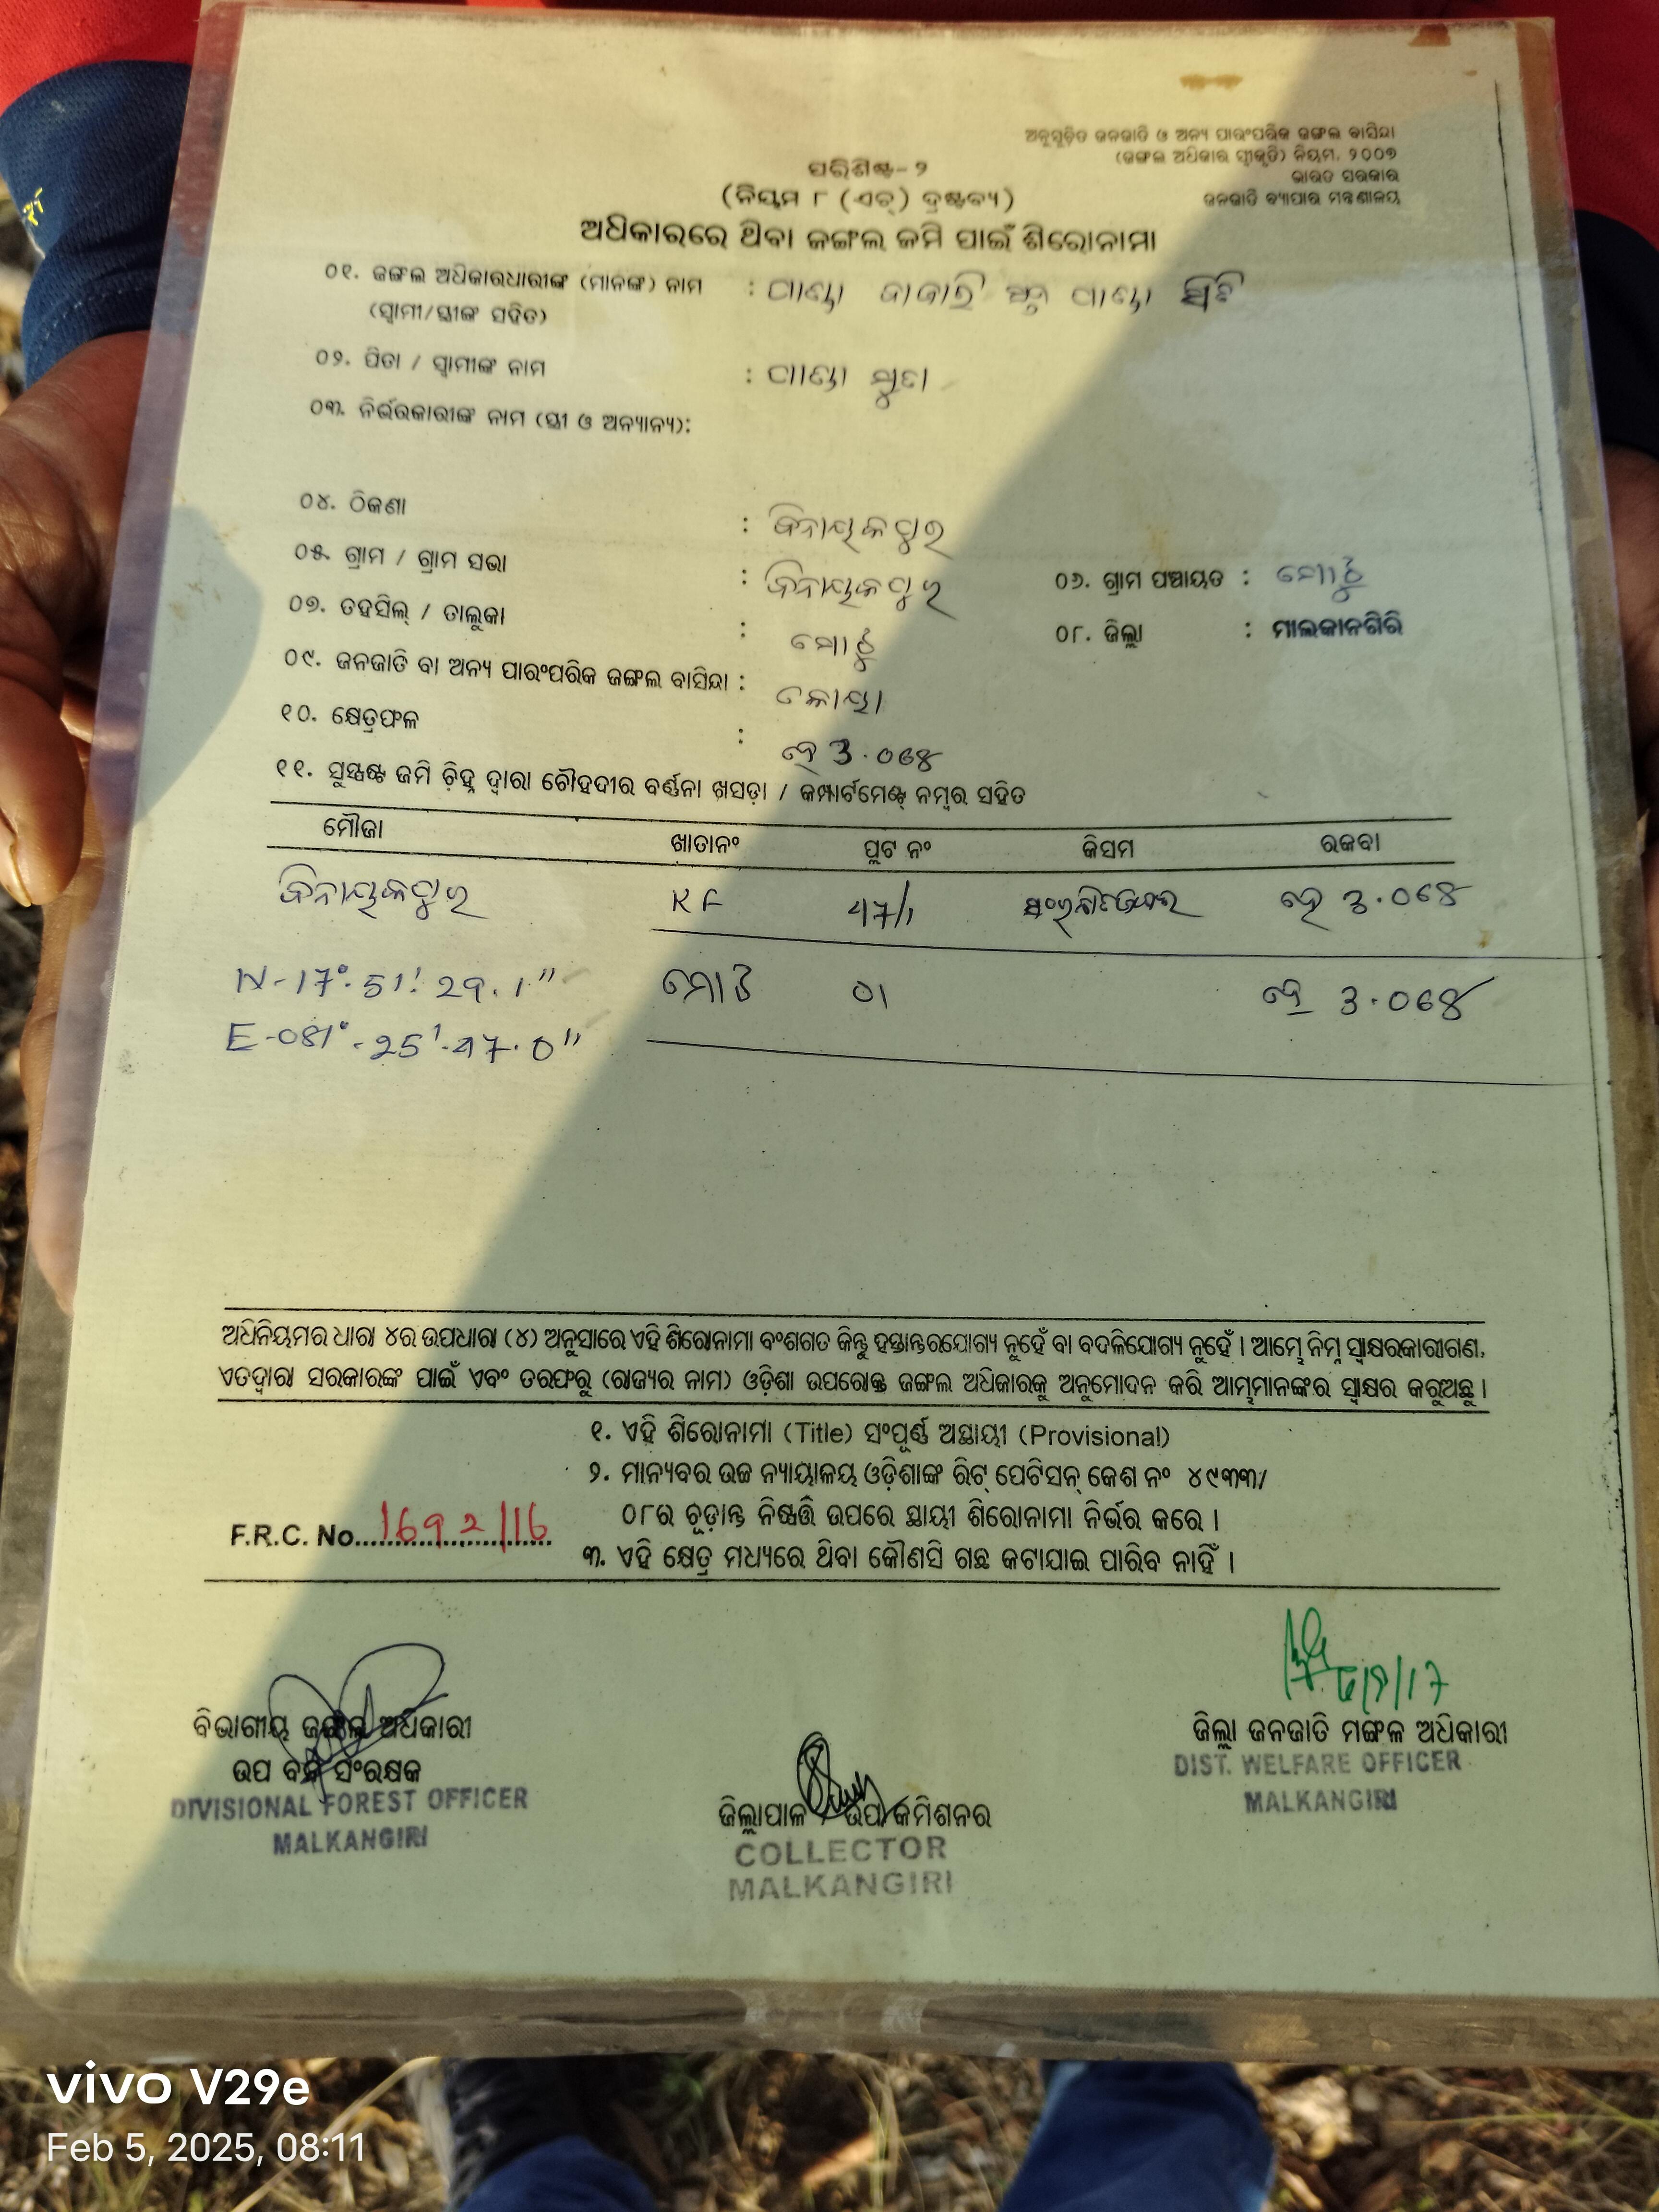 ଅନୁସୂଚିତ ଜନଜାତି ଓ ଅନ୍ୟ ପାରଂପରିକ ଜଙ୍ଗଲ ବାସିନ୍ଦା
(ଜଙ୍ଗଲ ଅଧିକାର ସ୍ୱୀକୃତି) ନିୟମ, ୨୦୦୭
ଭାରତ ସରକାର
ଜନଜାତି ବ୍ୟାପାର ମନ୍ତ୍ରଣାଳୟ
ପରିଶିଷ୍ଟ-୨
(ନିୟମ ୮ (ଏଚ୍) ଦ୍ରଷ୍ଟବ୍ୟ)
ଅଧିକାରରେ ଥିବା ଜଙ୍ଗଲ ଜମି ପାଇଁ ଶିରୋନାମା
୦୧. ଜଙ୍ଗଲ ଅଧିକାରଧାରୀଙ୍କ (ମାନଙ୍କ) ନାମ : ପାଣ୍ଡା
(ସ୍ୱାମୀ/ସ୍ତ୍ରୀଙ୍କ ସହିତ)
୦୨. ପିତା / ସ୍ୱାମୀଙ୍କ ନାମ : ପାଣ୍ଡା
୦୩. ନିର୍ଭରକାରୀଙ୍କ ନାମ (ସ୍ତ୍ରୀ ଓ ଅନ୍ୟାନ୍ୟ):
୦୪. ଠିକଣା : ବିନାୟକପୁର
୦୫. ଗ୍ରାମ / ଗ୍ରାମ ସଭା : ବିନାୟକପୁର ୦୬. ଗ୍ରାମ ପଞ୍ଚାୟତ : ମୋଟୁ
୦୭. ତହସିଲ୍ / ତାଲୁକା : ମୋଟୁ ୦୮. ଜିଲ୍ଲା : ମାଲକାନଗିରି
୦୯. ଜନଜାତି ବା ଅନ୍ୟ ପାରଂପରିକ ଜଙ୍ଗଲ ବାସିନ୍ଦା : କୋୟା
୧୦. କ୍ଷେତ୍ରଫଳ : ହେ
୧୧. ସୁସ୍ପଷ୍ଟ ଜମି ଚିହ୍ନ ଦ୍ୱାରା ଚୌହଦୀର ବର୍ଣ୍ଣନା ଖସଡ଼ା / କମ୍ପାର୍ଟମେଣ୍ଟ୍ ନମ୍ବର ସହିତ
ମୌଜା ଖାତାନଂ ପ୍ଲଟ ନଂ କିସମ ରକବା
ବିନାୟକପୁର RF 47/1 ହେ
N-17°.51'.29.1" ମୋଟ 01 ହେ
E-081°.25'.47.0"
ଅଧିନିୟମର ଧାରା ୪ର ଉପଧାରା (୪) ଅନୁସାରେ ଏହି ଶିରୋନାମା ବଂଶଗତ କିନ୍ତୁ ହସ୍ତାନ୍ତରଯୋଗ୍ୟ ନୁହେଁ ବା ବଦଳିଯୋଗ୍ୟ ନୁହେଁ । ଆମ୍ଭେ ନିମ୍ନ ସ୍ୱାକ୍ଷରକାରୀଗଣ,
ଏତଦ୍ୱାରା ସରକାରଙ୍କ ପାଇଁ ଏବଂ ତରଫରୁ (ରାଜ୍ୟର ନାମ) ଓଡ଼ିଶା ଉପରୋକ୍ତ ଜଙ୍ଗଲ ଅଧିକାରକୁ ଅନୁମୋଦନ କରି ଆମ୍ଭମାନଙ୍କର ସ୍ୱାକ୍ଷର କରୁଅଛୁ ।
୧. ଏହି ଶିରୋନାମା (Title) ସଂପୂର୍ଣ୍ଣ ଅସ୍ଥାୟୀ (Provisional)
୨. ମାନ୍ୟବର ଉଚ୍ଚ ନ୍ୟାୟାଳୟ ଓଡ଼ିଶାଙ୍କ ରିଟ୍ ପେଟିସନ୍ କେଶ ନଂ ୪୯୩୩/
୦୮ର ଚୂଡ଼ାନ୍ତ ନିଷ୍ପତ୍ତି ଉପରେ ସ୍ଥାୟୀ ଶିରୋନାମା ନିର୍ଭର କରେ ।
F.R.C. No. 1692/16
୩. ଏହି କ୍ଷେତ୍ର ମଧ୍ୟରେ ଥିବା କୌଣସି ଗଛ କଟାଯାଇ ପାରିବ ନାହିଁ ।
ବିଭାଗୀୟ ଜଙ୍ଗଲ ଅଧିକାରୀ
ଉପ ବନ ସଂରକ୍ଷକ
DIVISIONAL FOREST OFFICER
MALKANGIRI
ଜିଲ୍ଲାପାଳ / ଉପ କମିଶନର
COLLECTOR
MALKANGIRI
ଜିଲ୍ଲା ଜନଜାତି ମଙ୍ଗଳ ଅଧିକାରୀ
DIST. WELFARE OFFICER
MALKANGIRI
vivo V29e
Feb 5, 2025, 08:11